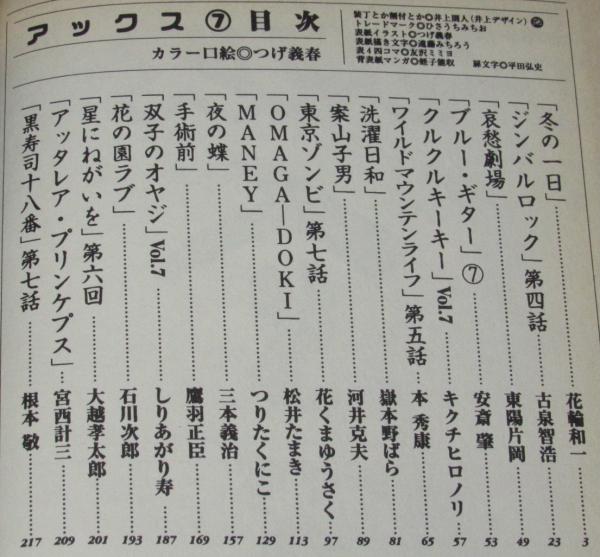 アックス⑦目次
カラー口絵◎つげ義春
装丁とか割付とか◎井上則人(井上デザイン)
トレードマーク◎ひさうちみちお
表紙イラスト◎つげ義春
表紙描き文字◎遠藤みちろう
表4四コマ◎友沢ミミヨ
背表紙マンガ◎蛭子能収 扉文字◎平田弘史
「冬の一日」……花輪和一 3
「ジンバルロック」第四話……古泉智浩 23
「哀愁劇場」……東陽片岡 49
「ブルー・ギター」⑦……安斎 肇 53
「クルクルキーキー」Vol.7……キクチヒロノリ 57
「ワイルドマウンテンライフ」第五話……本 秀康 65
「洗濯日和」……嶽本野ばら 81
「案山子男」……河井克夫 89
「東京ゾンビ」第七話……花くまゆうさく 97
「OMAGA—DOKI」……松井たまき 113
「MANEY」……つりたくにこ 129
「夜の蝶」……三本義治 157
「手術前」……鷹羽正臣 169
「双子のオヤジ」Vol.7……しりあがり寿 187
「花の園ラブ」……石川次郎 193
「星にねがいを」第六回……大越孝太郎 201
「アッタレア・プリンケプス」……宮西計三 209
「黒寿司十八番」第七話……根本 敬 217